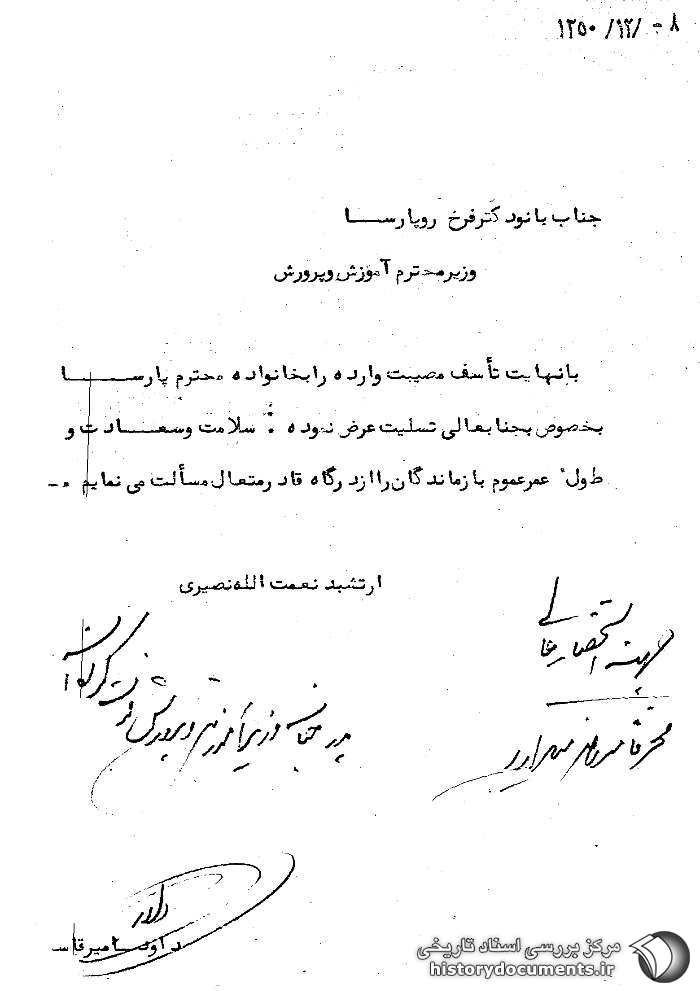 ۸ -/۱۲/ ۱۳۵۰
جناب بانو دکتر فرخ رو پارسا
وزیر محترم آموزش و پرورش
با نهایت تأسف مصیبت وارده را بخانواده محترم پارسا
بخصوص بجنابعالی تسلیت عرض نموده : سلامت و سعادت و
طول عمر عموم بازماندگان را از درگاه قادر متعال مسألت می نمایم .-
ارتشبد نعمت الله نصیری
جهت استحضار عالی
پدر جناب وزیر آموزش و پرورش فوت کرده‌اند
مرکز بررسی اسناد تاریخی
historydocuments.ir